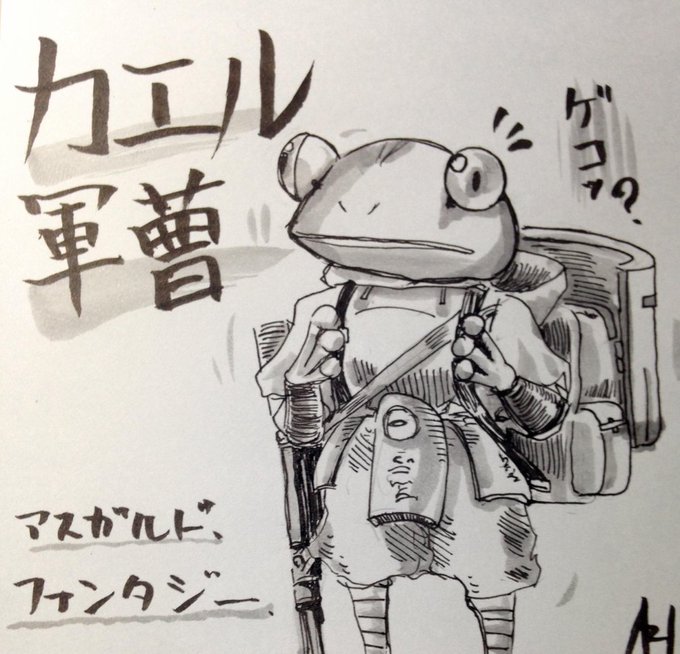 カエル
軍曹
ゲコッ?
アスガルド、
ファンタジー、